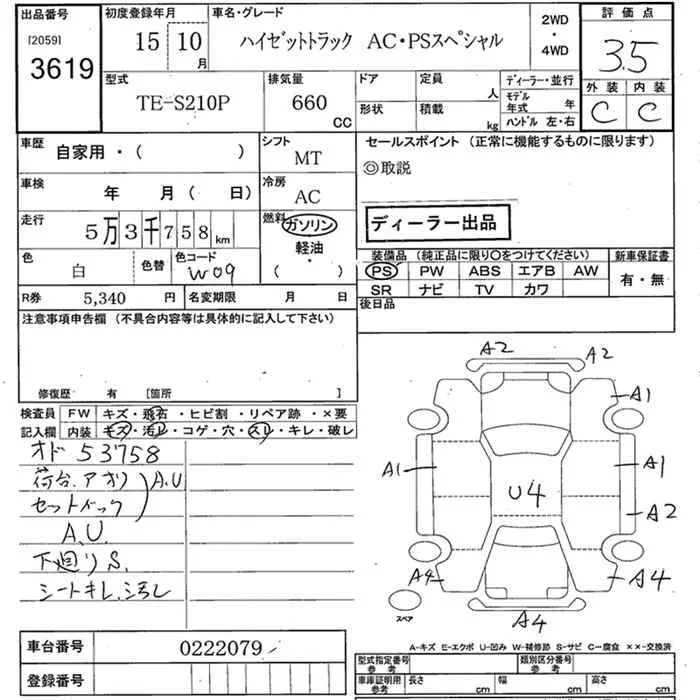 出品番号
[2059]
3619
初度登録年月
15 10 月
車名・グレード
ハイゼットトラック AC・PSスペシャル
2WD
・
4WD
評価点
3.5
外装 内装
C C
型式
TE-S210P
排気量
660 CC
ドア
形状
定員 人
積載 kg
ディーラー・並行
モデル年式 年
ハンドル 左・右
車歴
自家用・( )
シフト
MT
セールスポイント (正常に機能するものに限ります)
◎取説
ディーラー出品
車検
年 月( 日)
冷房
AC
走行
5万3千758km
燃料
ガソリン
軽油
・
( )
色
白
色替
色コード
W09
装備品 (純正品に限り○をつけてください)
PS PW ABS エアB AW
SR ナビ TV カワ
新車保証書
有・無
R券 5,340 円
名変期限 月 日
後日品
注意事項申告欄 (不具合内容等は具体的に記入して下さい)
修復歴 有 [箇所 ]
検査員記入欄
FW キズ・飛石・ヒビ割・リペア跡・×要
内装 キズ・汚レ・コゲ・穴・スレ・キレ・破レ
オド 53758
荷台.アオリ
セットバック A.U
A.U.
下廻りS.
シートキレ.汚レ
A2
A2
A1
A1
A1
U4
A2
A4
A4
A4
スペア
A-キズ E-エクボ U-凹み W-補修跡 S-サビ C-腐食 ××-交換済
車台番号 0222079
登録番号
型式指定番号 参考
類別区分番号 参考
車庫証明用 参考
長さ cm
幅 cm
高さ cm